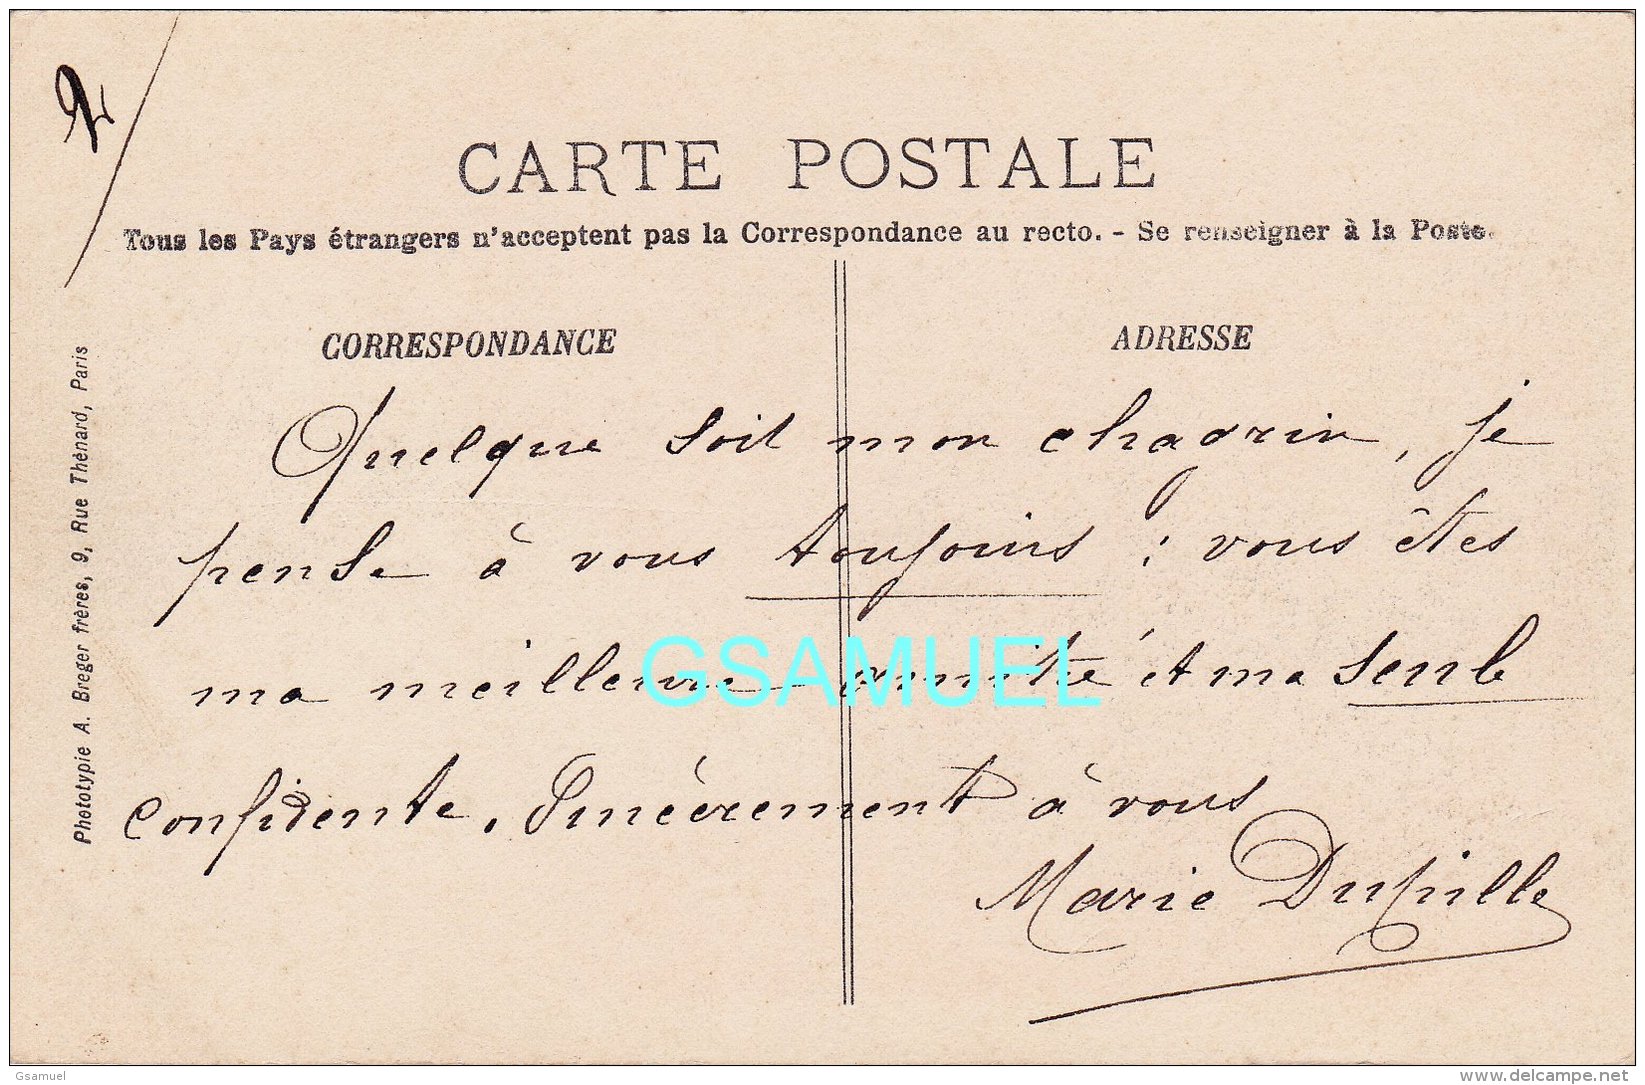 2
CARTE POSTALE
Tous les Pays étrangers n'acceptent pas la Correspondance au recto. - Se renseigner à la Poste.
CORRESPONDANCE
ADRESSE
Quelque soit mon chagrin, je
pense à vous toujours : vous êtes
ma meilleure amitié et ma seule
confidente. Sincèrement à vous
Marie Dupille
Phototypie A. Breger frères, 9, Rue Thénard, Paris
GSAMUEL
Gsamuel
delcampe.net